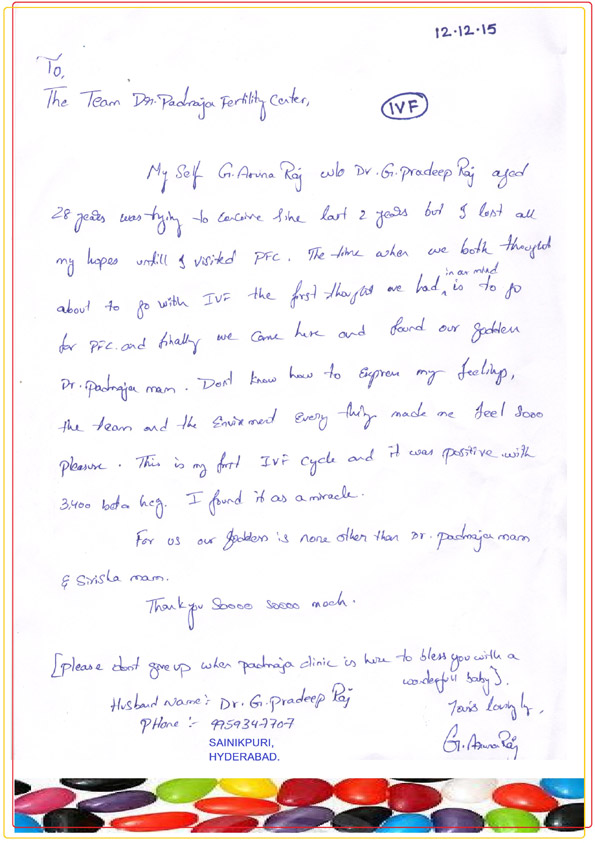 12.12.15
To,
The Team Dr. Padmaja Fertility Center,
IVF
My Self G. Aruna Raj w/o Dr. G. Pradeep Raj aged
28 years was trying to conceive Sine last 2 years but I lost all
my hopes untill I visited PFC. The time when we both thought
about to go with IVF the first thought we had in our mind is to go
for PFC. and finally we came here and found our goddess
Dr. Padmaja mam. Dont know how to express my feelings,
the team and the Envirment every thing made me feel Sooo
pleasure. This is my first IVF cycle and it was positive with
3,400 beta hcg. I found it as a miracle.
For us our goddess is none other than Dr. padmaja mam
& Sirisha mam.
Thank you Soooo soooo much.
[please dont give up when padmaja clinic is here to bless you with a
wonderfull baby].
Husband Name :- Dr. G. Pradeep Raj
Phone :- 9759347707
Yours lovingly,
G. Aruna Raj
SAINIKPURI,
HYDERABAD.